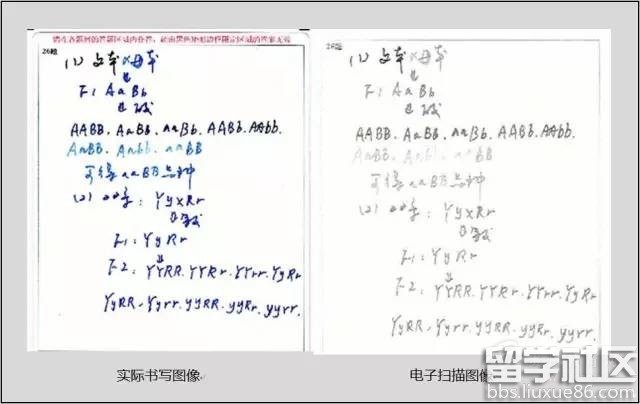 请在各题目的答题区域内作答，超出黑色矩形边框限定区域的答案无效
26题
(1) 父本×母本
↓
F1 AaBb
↓
AABB. AaBb. aaBb. AABb. AAbb.
AaBB. Aabb. aaBB
可得 aaBB 品种
(2) YyxRr
F1: YyRr
↓
F2: YYRR. YYRr. YYrr. YyRr
YyRR. Yyrr. yyRR. yyRr. yyrr.
实际书写图像
26题
(1) 父本×母本
↓
F1 AaBb
↓
AABB. AaBb. aaBb. AABb. AAbb.
AaBB. Aabb. aaBB
可得 aaBB 品种
(2) YyxRr
F1: YyRr
↓
F2: YYRR. YYRr. YYrr. YyRr
YyRR. Yyrr. yyRR. yyRr. yyrr.
电子扫描图像
留学社区
bbs.liuxue86.com